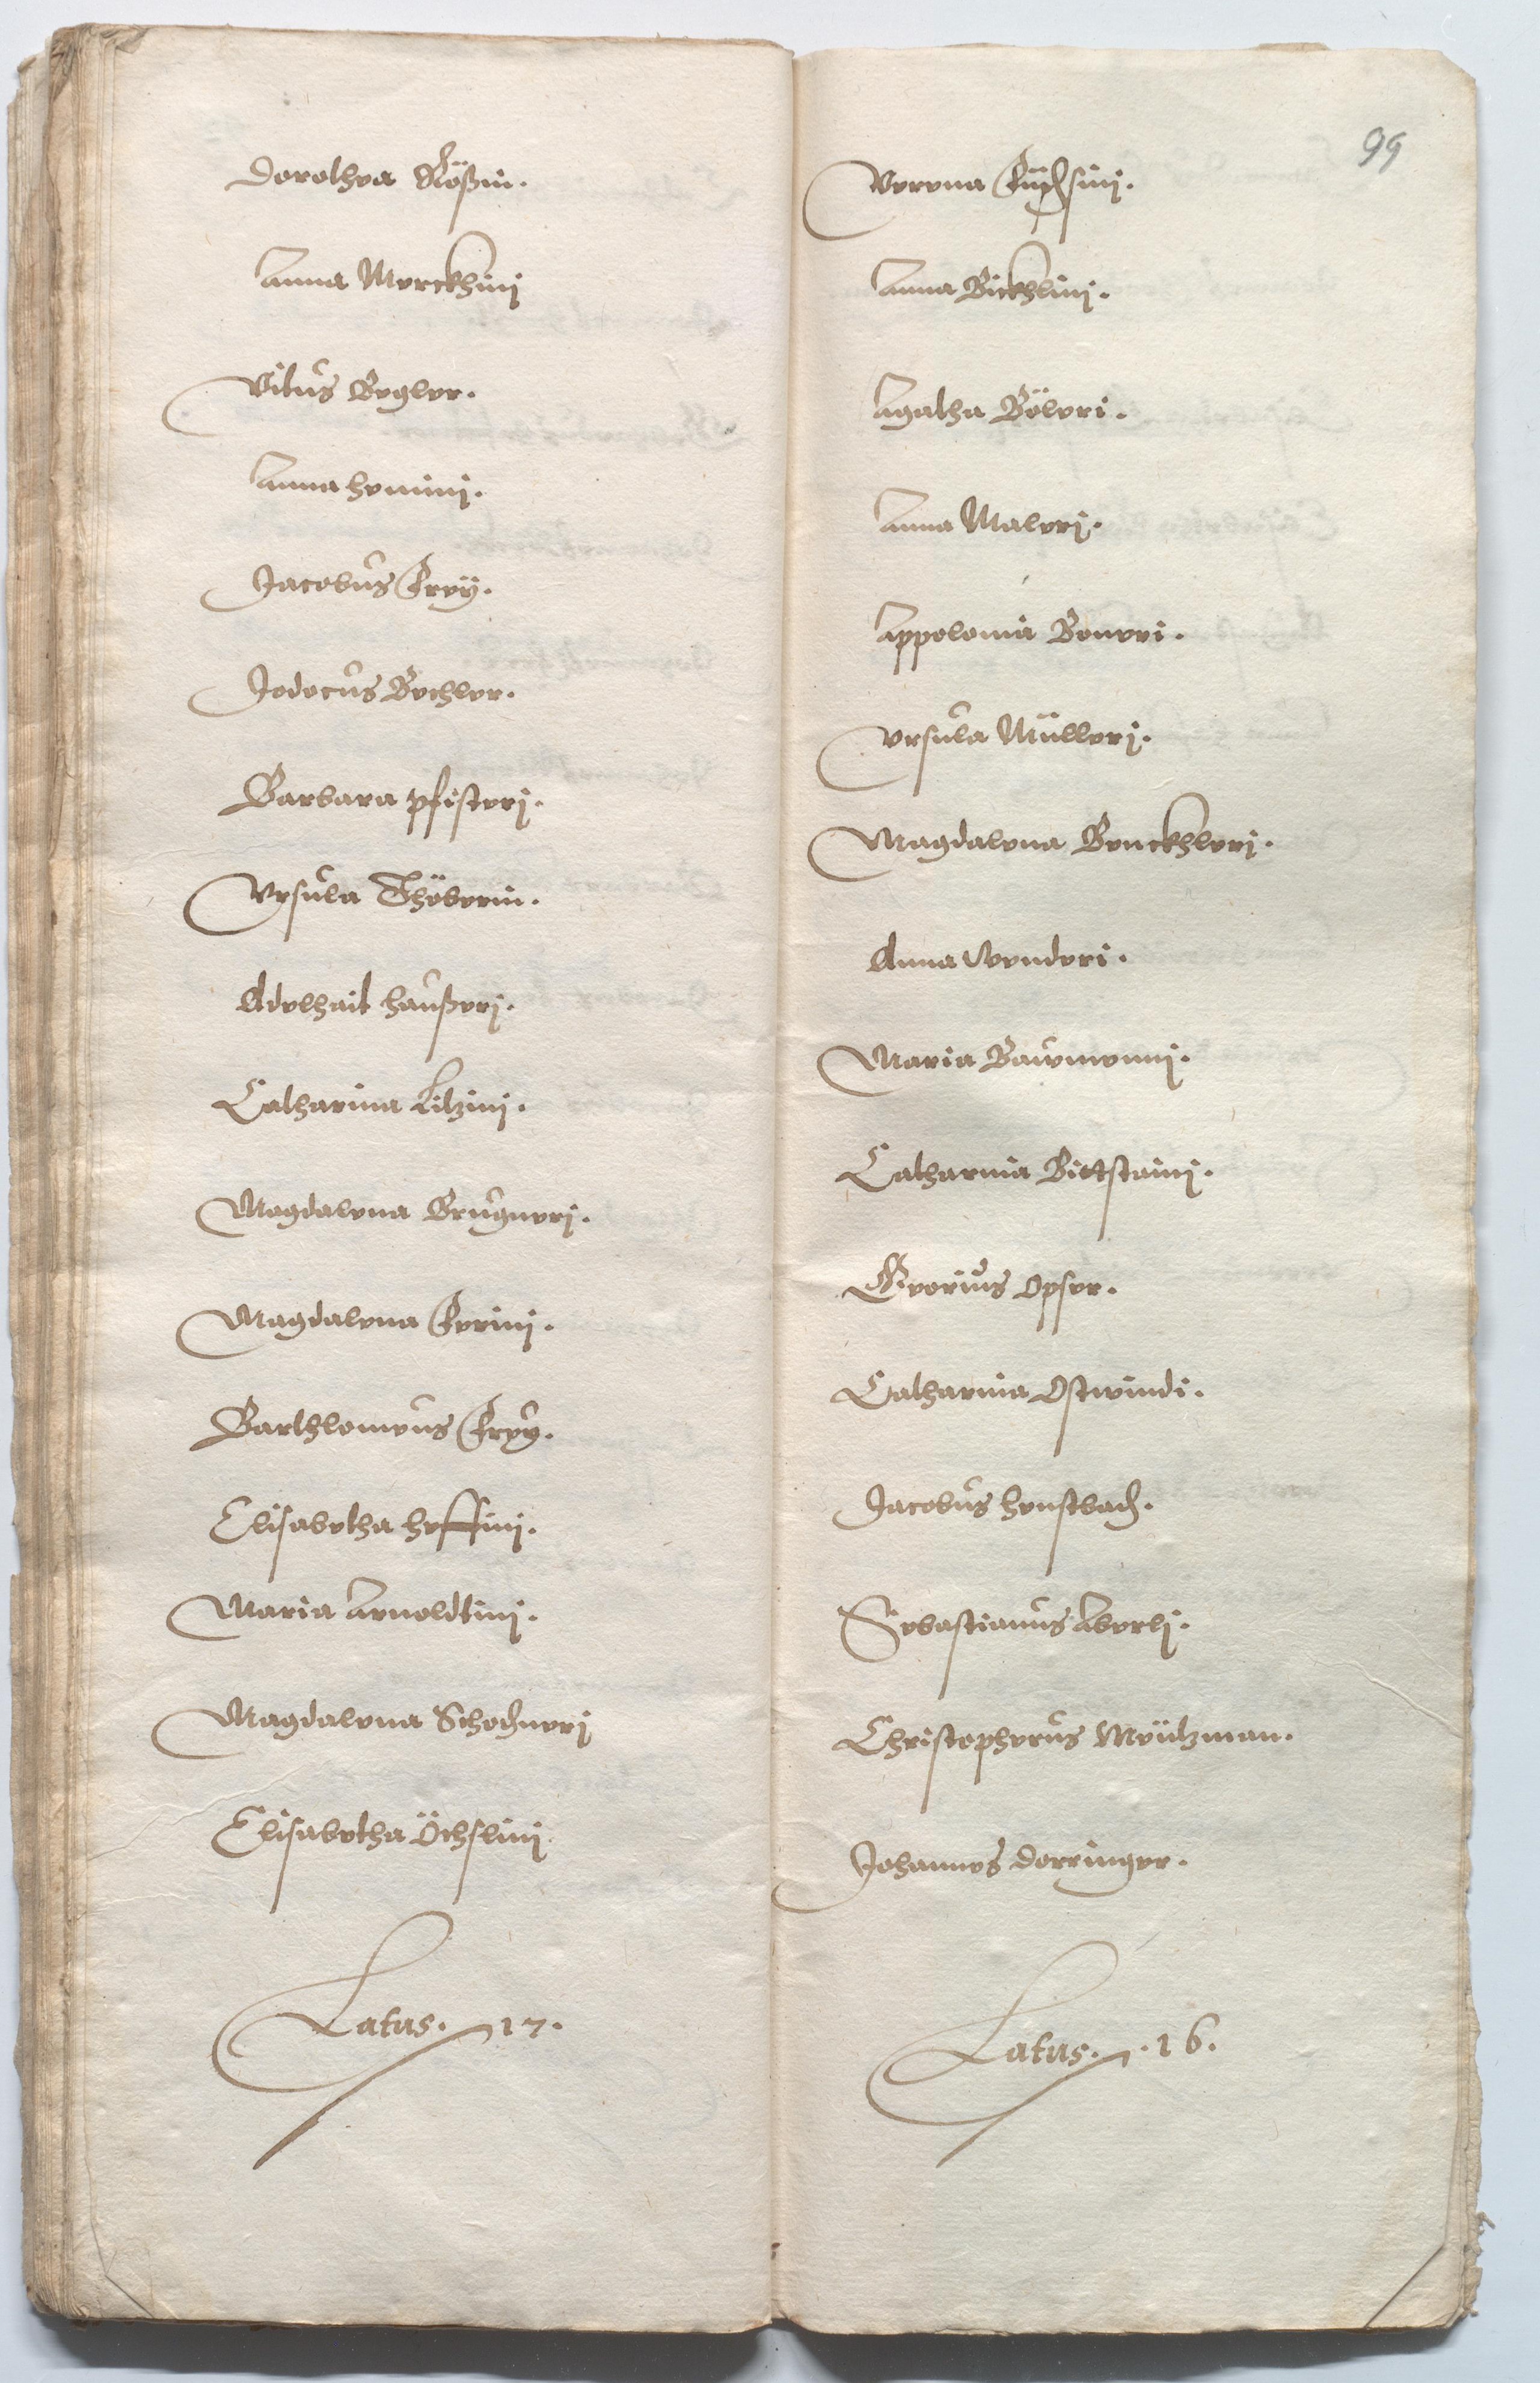 Dorothea Rößin.
Anna Merckhinj
Vitus Begler.
Anna heminj.
Jacobus Freÿ.
Jodocus Bechler.
Barbara pfisterj.
Vrsula Thöberin.
Adelhait haußerj.
Catharina Litzinj.
Magdalena Brugnerj.
Magdalena Ferinj.
Barthlomeus Frey.
Elisabetha heffinj.
Maria Arnoldtinj.
Magdalena Schochnerj
Elisabetha Öchslinj.
Latus. 17.
99
Verena Füchsinj.
Anna Bickhlinj.
Agatha Böleri.
Anna Malerj.
Appolonia Boneri.
Vrsula Müllerj.
Magdalena Benckhlerj.
Anna Wenderi.
Maria Bawmennj.
Catharina Bittstainj.
Georius Opser.
Catharina Ostwindi.
Jacobus henstbach.
Sebastianus Aberlj.
Christopherus Meützman.
Johannes Derringer.
Latus. .16.